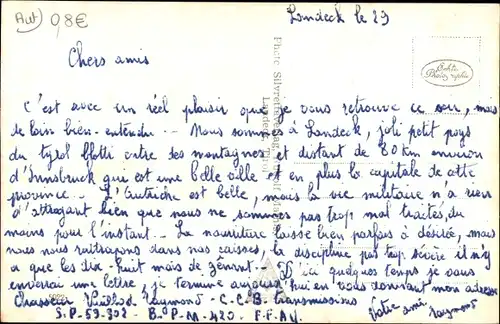 Aut) 0,8€
Landeck le 29
Chers amis
Echte Photographie
C'est avec un réel plaisir que je vous retrouve ce soir, mais
de loin bien-entendu... Nous sommes à Landeck, joli petit pays
du tyrol blotti entre ses montagnes et distant de 80 km environ
d'Innsbruck qui est une belle ville et en plus la capitale de cette
province. L'Autriche est belle, mais la vie militaire n'a rien
d'attrayant bien que nous ne sommes pas trop mal traités, du
moins pour l'instant. La nourriture laisse bien parfois à désirer, mais
nous nous rattrapons dans nos caisses, la discipline pas trop sévère il n'y
a que les dix-huit mois de D'ici quelques temps je vous
enverrai une lettre, je termine aujourd'hui en vous donnant mon adresse
Chasseur Raymond - C.C.B. transmissions
S.P. 53.302 - B.P.M. 420 - F.F.A.
Votre ami Raymond
Photo Silvretta